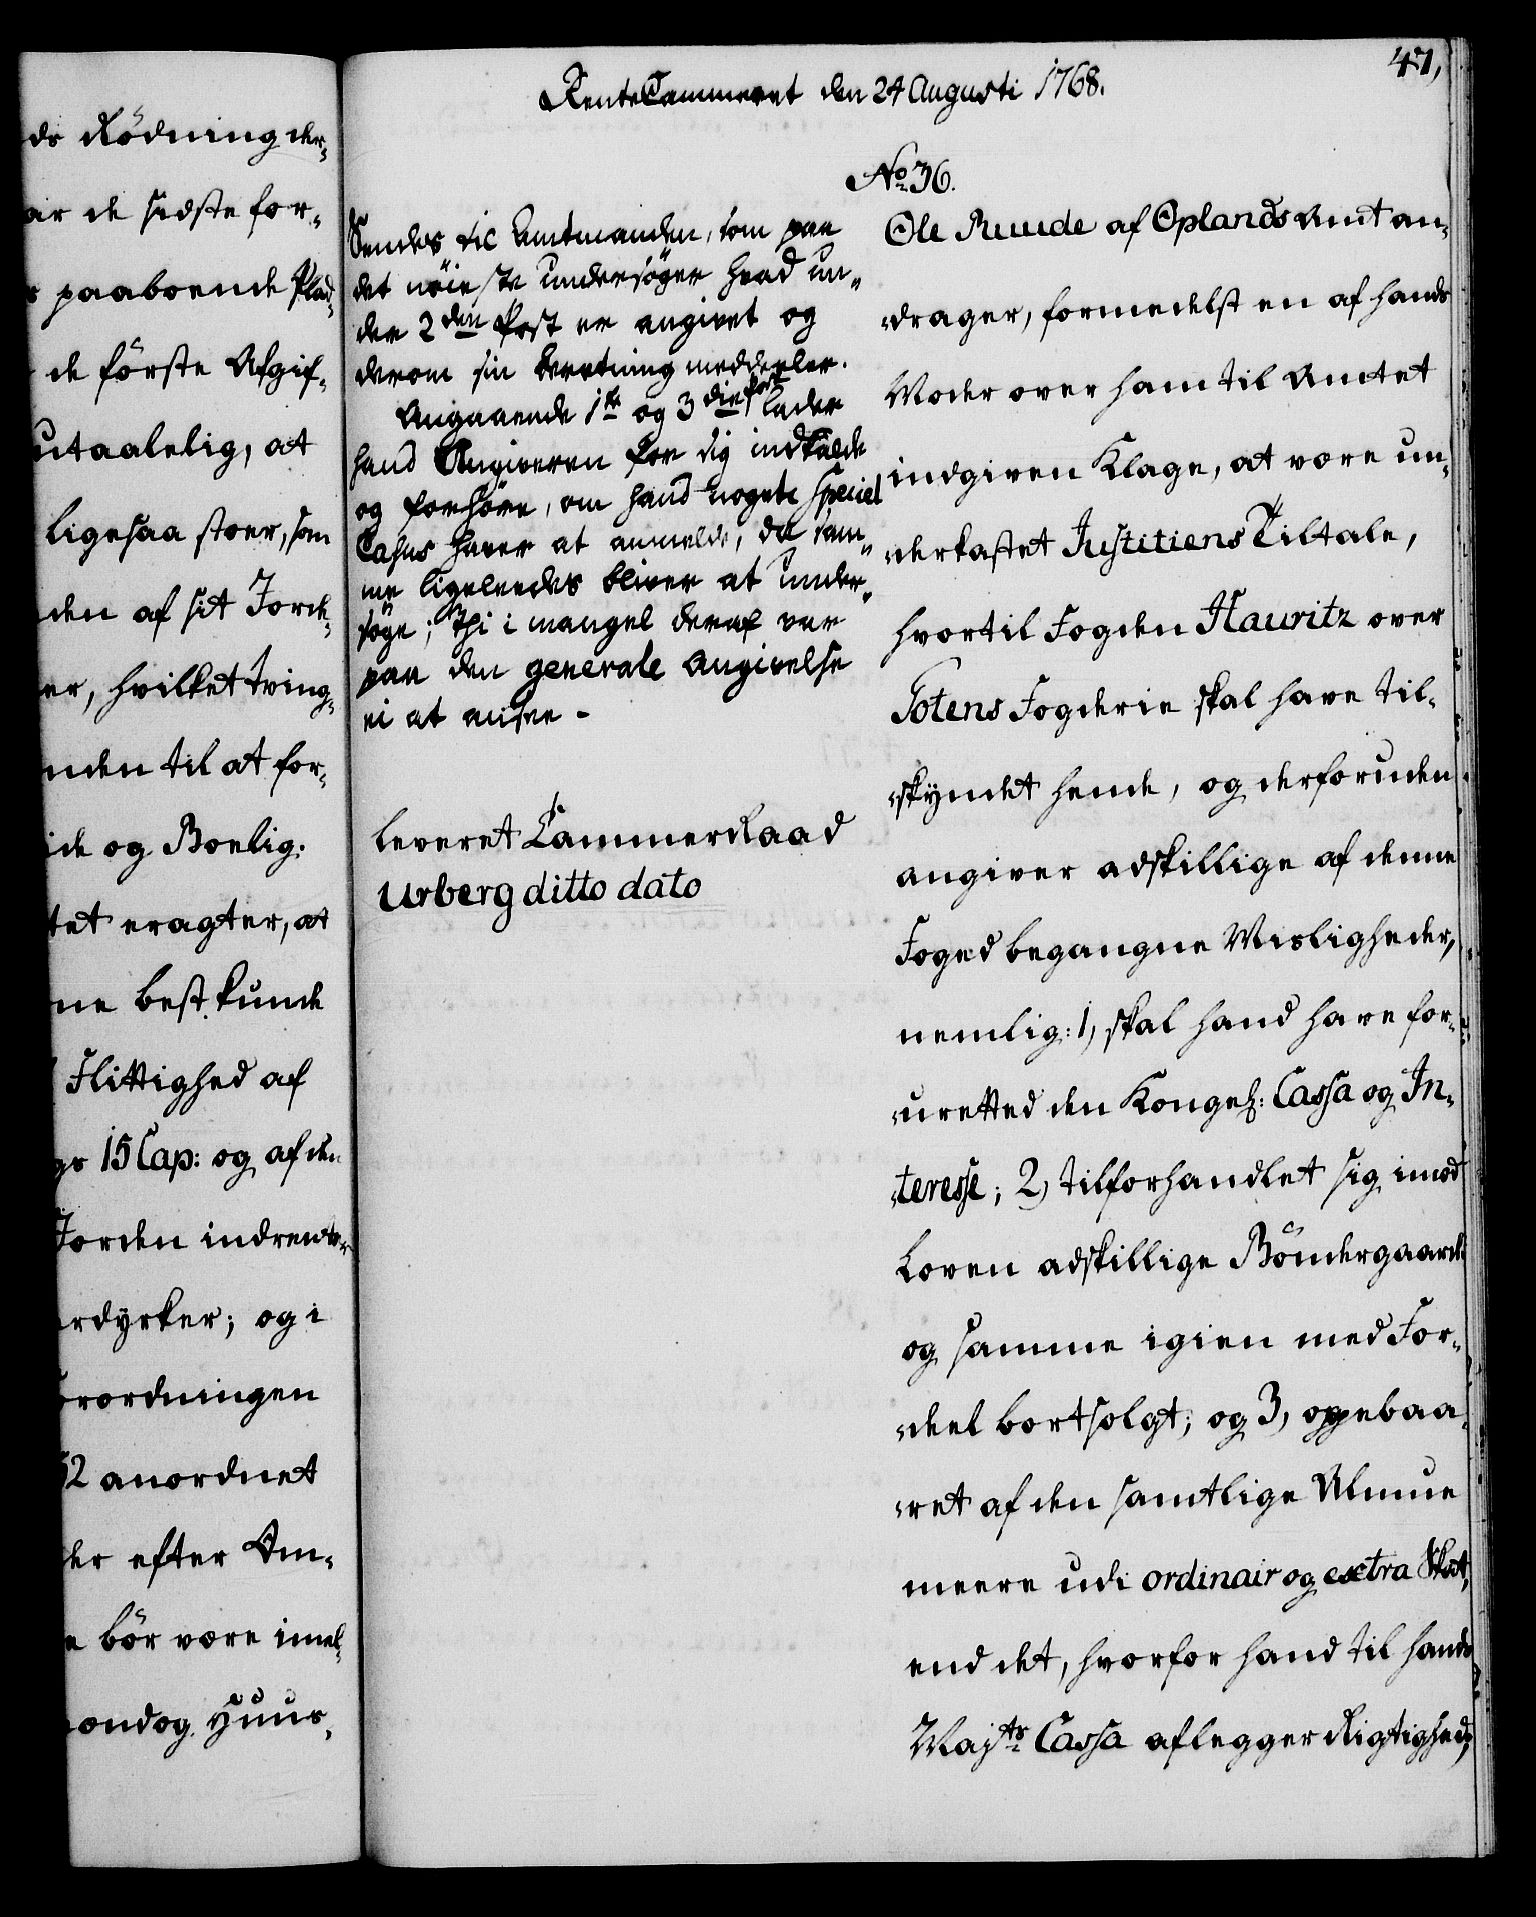 ds Rödning der-
ar de sidste for-
s paaboende Plad-
de förste Afgif-
utaalelig, at
ligesaa stoer, som
den af sit Jord-
er, hvilket tving-
nden til at for-
ide og Boelig.
tet eragter, at
ne best kunde
Flittighed af
gs 15 Cap: og af den
Jorden indrenter
rdyrker; og i
orordningen
52 anordnet
der efter Om-
e bör være imel-
ondog Huus-
RenteCammeret den 24 Augusti 1768.
47,
Sendes til Amtmanden, som paa
det nöieste undersöger hvad un-
der 2den Post er angivet og
derom sin Beretning meddeeler.
Angaaende 1ste og 3die Post lader
hand Angiveren for sig indkalde
og forhöre, om hand nogete special
Casus haver at anmelde, da sam-
me ligeleedes bliver at under-
söge; Thi i mangel deraf var
paa den generale Angivelse
ei at ansee -
leveret CammerRaad
Urberg ditto dato
No. 36.
Ole Ruude af Oplands Amt an-
drager, formedelst en af hands
Moder over ham til Amtet
indgiven Klage, at være un-
derkastet Justitiens Tiltale,
hvortil Fogden Hauritz over
Totens Fogderie skal have til-
skyndet hende, og derforuden
angiver adskillige af denne
Foged begangne Misligheder,
nemlig: 1, skal hand have for-
uretted den Kongel: Cassa og In-
teresse; 2, tilforhandlet sig imod
Loven adskillige Böndergaarde
og samme igien med For-
deel bortsolgt; og 3, oppebaa-
ret af den samtlige Almue
meere udi ordinair og extra Skat,
end det, hvorfor hand til hands
Majts Cassa aflegger Rigtighed,